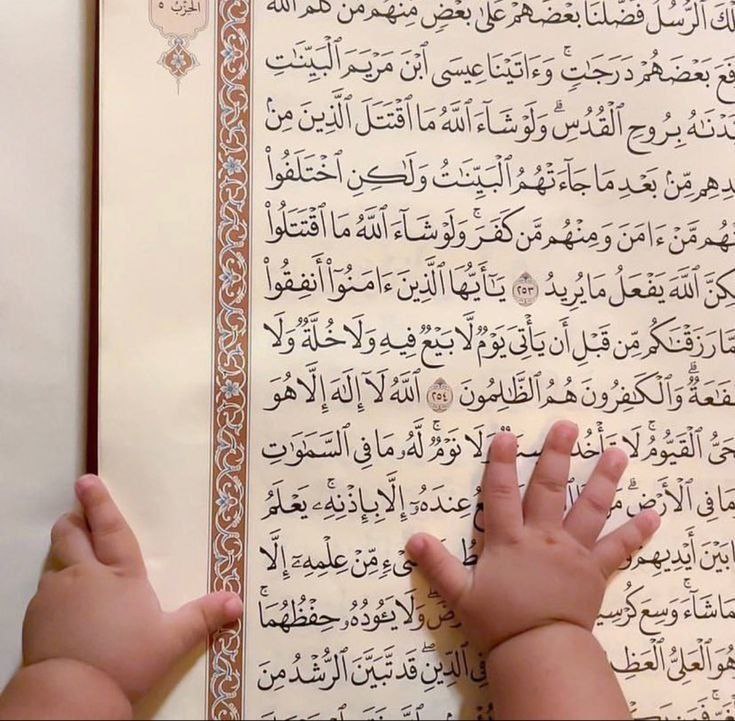 الحِزْبُ ٥
لْكَ ٱلرُّسُلُ فَضَّلْنَا بَعْضَهُمْ عَلَىٰ بَعْضٍ مِّنْهُم مَّن كَلَّمَ ٱللَّهُ
فَعَ بَعْضَهُمْ دَرَجَٰتٍ ۚ وَءَاتَيْنَا عِيسَى ٱبْنَ مَرْيَمَ ٱلْبَيِّنَٰتِ
يَّدْنَٰهُ بِرُوحِ ٱلْقُدُسِ ۗ وَلَوْ شَآءَ ٱللَّهُ مَا ٱقْتَتَلَ ٱلَّذِينَ مِنۢ
دِهِم مِّنۢ بَعْدِ مَا جَآءَتْهُمُ ٱلْبَيِّنَٰتُ وَلَٰكِنِ ٱخْتَلَفُوا۟
نْهُم مَّنْ ءَامَنَ وَمِنْهُم مَّن كَفَرَ ۚ وَلَوْ شَآءَ ٱللَّهُ مَا ٱقْتَتَلُوا۟
كِنَّ ٱللَّهَ يَفْعَلُ مَا يُرِيدُ ٢٥٣ يَٰٓأَيُّهَا ٱلَّذِينَ ءَامَنُوٓا۟ أَنفِقُوا۟
مَّا رَزَقْنَٰكُم مِّن قَبْلِ أَن يَأْتِىَ يَوْمٌ لَّا بَيْعٌ فِيهِ وَلَا خُلَّةٌ وَلَا
فَٰعَةٌ ۗ وَٱلْكَٰفِرُونَ هُمُ ٱلظَّٰلِمُونَ ٢٥٤ ٱللَّهُ لَآ إِلَٰهَ إِلَّا هُوَ
حَىُّ ٱلْقَيُّومُ ۚ لَا وَلَا نَوْمٌ ۚ لَّهُۥ مَا فِى ٱلسَّمَٰوَٰتِ
مَا فِى ٱلْأَرْضِ ۗ عِندَهُۥٓ إِلَّا بِإِذْنِهِۦ ۚ يَعْلَمُ
ا بَيْنَ أَيْدِيهِمْ مِّنْ عِلْمِهِۦٓ إِلَّا
مَا شَآءَ ۚ وَسِعَ وَلَا يَـُٔودُهُۥ حِفْظُهُمَا ۚ
هُوَ ٱلْعَلِىُّ فِى ٱلدِّينِ ۖ قَد تَّبَيَّنَ ٱلرُّشْدُ مِنَ